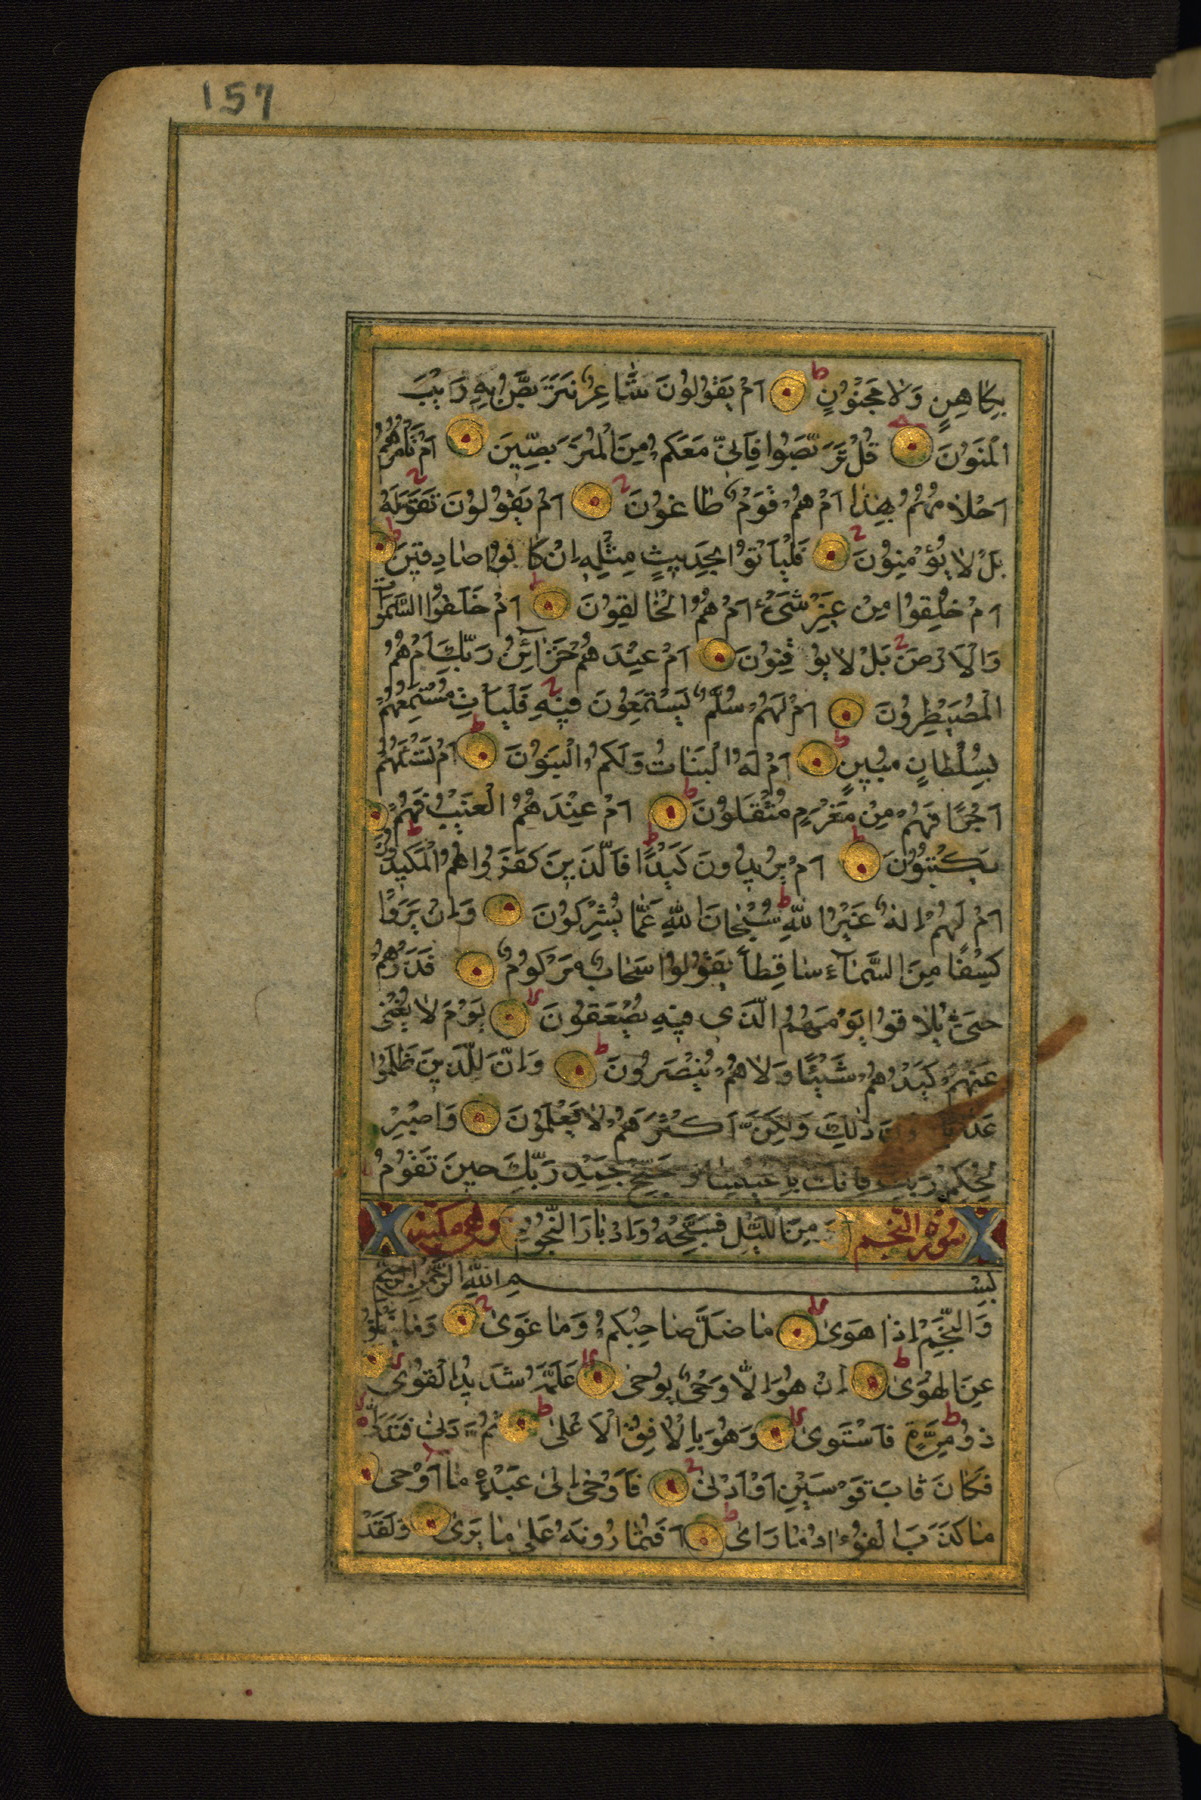 157
بِكَاهِنٍ وَلَا مَجْنُونٍ اَمْ يَقُولُونَ شَاعِرٌ نَتَرَبَّصُ بِهِ رَيْبَ
الْمَنُونَ قُلْ تَرَبَّصُوا فَاِنّي مَعَكُمْ مِنَ الْمُتَرَبِّصِينَ اَمْ تَاْمُرُهُمْ
اَحْلَامُهُمْ بِهٰذَا اَمْ هُمْ قَوْمٌ طَاغُونَ اَمْ يَقُولُونَ تَقَوَّلَهُ
بَلْ لَا يُؤْمِنُونَ فَلْيَاْتُوا بِحَدِيثٍ مِثْلِهِ اِنْ كَانُوا صَادِقِينَ
اَمْ خُلِقُوا مِنْ غَيْرِ شَيْءٍ اَمْ هُمُ الْخَالِقُونَ اَمْ خَلَقُوا السَّمٰوَاتِ
وَالْاَرْضَ بَلْ لَا يُوقِنُونَ اَمْ عِنْدَهُمْ خَزَائِنُ رَبِّكَ اَمْ هُمُ
الْمُصَيْطِرُونَ اَمْ لَهُمْ سُلَّمٌ يَسْتَمِعُونَ فِيهِ فَلْيَاْتِ مُسْتَمِعُهُمْ
بِسُلْطَانٍ مُبِينٍ اَمْ لَهُ الْبَنَاتُ وَلَكُمُ الْبَنُونَ اَمْ تَسْئَلُهُمْ
اَجْرًا فَهُمْ مِنْ مَغْرَمٍ مُثْقَلُونَ اَمْ عِنْدَهُمُ الْغَيْبُ فَهُمْ
يَكْتُبُونَ اَمْ يُرِيدُونَ كَيْدًا فَالَّذِينَ كَفَرُوا هُمُ الْمَكِيدُونَ
اَمْ لَهُمْ اِلٰهٌ غَيْرُ اللّٰهِ سُبْحَانَ اللّٰهِ عَمَّا يُشْرِكُونَ وَاِنْ يَرَوْا
كِسْفًا مِنَ السَّمَاءِ سَاقِطًا يَقُولُوا سَحَابٌ مَرْكُومٌ فَذَرْهُمْ
حَتّٰى يُلَاقُوا يَوْمَهُمُ الَّذِي فِيهِ يُصْعَقُونَ يَوْمَ لَا يُغْنِي
عَنْهُمْ كَيْدُهُمْ شَيْئًا وَلَا هُمْ يُنْصَرُونَ وَاِنَّ لِلَّذِينَ ظَلَمُوا
عَذَابًا دُونَ ذٰلِكَ وَلٰكِنَّ اَكْثَرَهُمْ لَا يَعْلَمُونَ وَاصْبِرْ
لِحُكْمِ رَبِّكَ فَاِنَّكَ بِاَعْيُنِنَا وَسَبِّحْ بِحَمْدِ رَبِّكَ حِينَ تَقُومُ
سورة النجم وَمِنَ اللَّيْلِ فَسَبِّحْهُ وَاِدْبَارَ النُّجُومِ وهي مكية
بِسْمِ اللّٰهِ الرَّحْمٰنِ الرَّحِيمِ
وَالنَّجْمِ اِذَا هَوٰى مَا ضَلَّ صَاحِبُكُمْ وَمَا غَوٰى وَمَا يَنْطِقُ
عَنِ الْهَوٰى اِنْ هُوَ اِلَّا وَحْيٌ يُوحٰى عَلَّمَهُ شَدِيدُ الْقُوٰى
ذُو مِرَّةٍ فَاسْتَوٰى وَهُوَ بِالْاُفُقِ الْاَعْلٰى ثُمَّ دَنٰى فَتَدَلّٰى
فَكَانَ قَابَ قَوْسَيْنِ اَوْ اَدْنٰى فَاَوْحٰى اِلٰى عَبْدِهِ مَا اَوْحٰى
مَا كَذَبَ الْفُؤَادُ مَا رَاٰى اَفَتُمَارُونَهُ عَلٰى مَا يَرٰى وَلَقَدْ